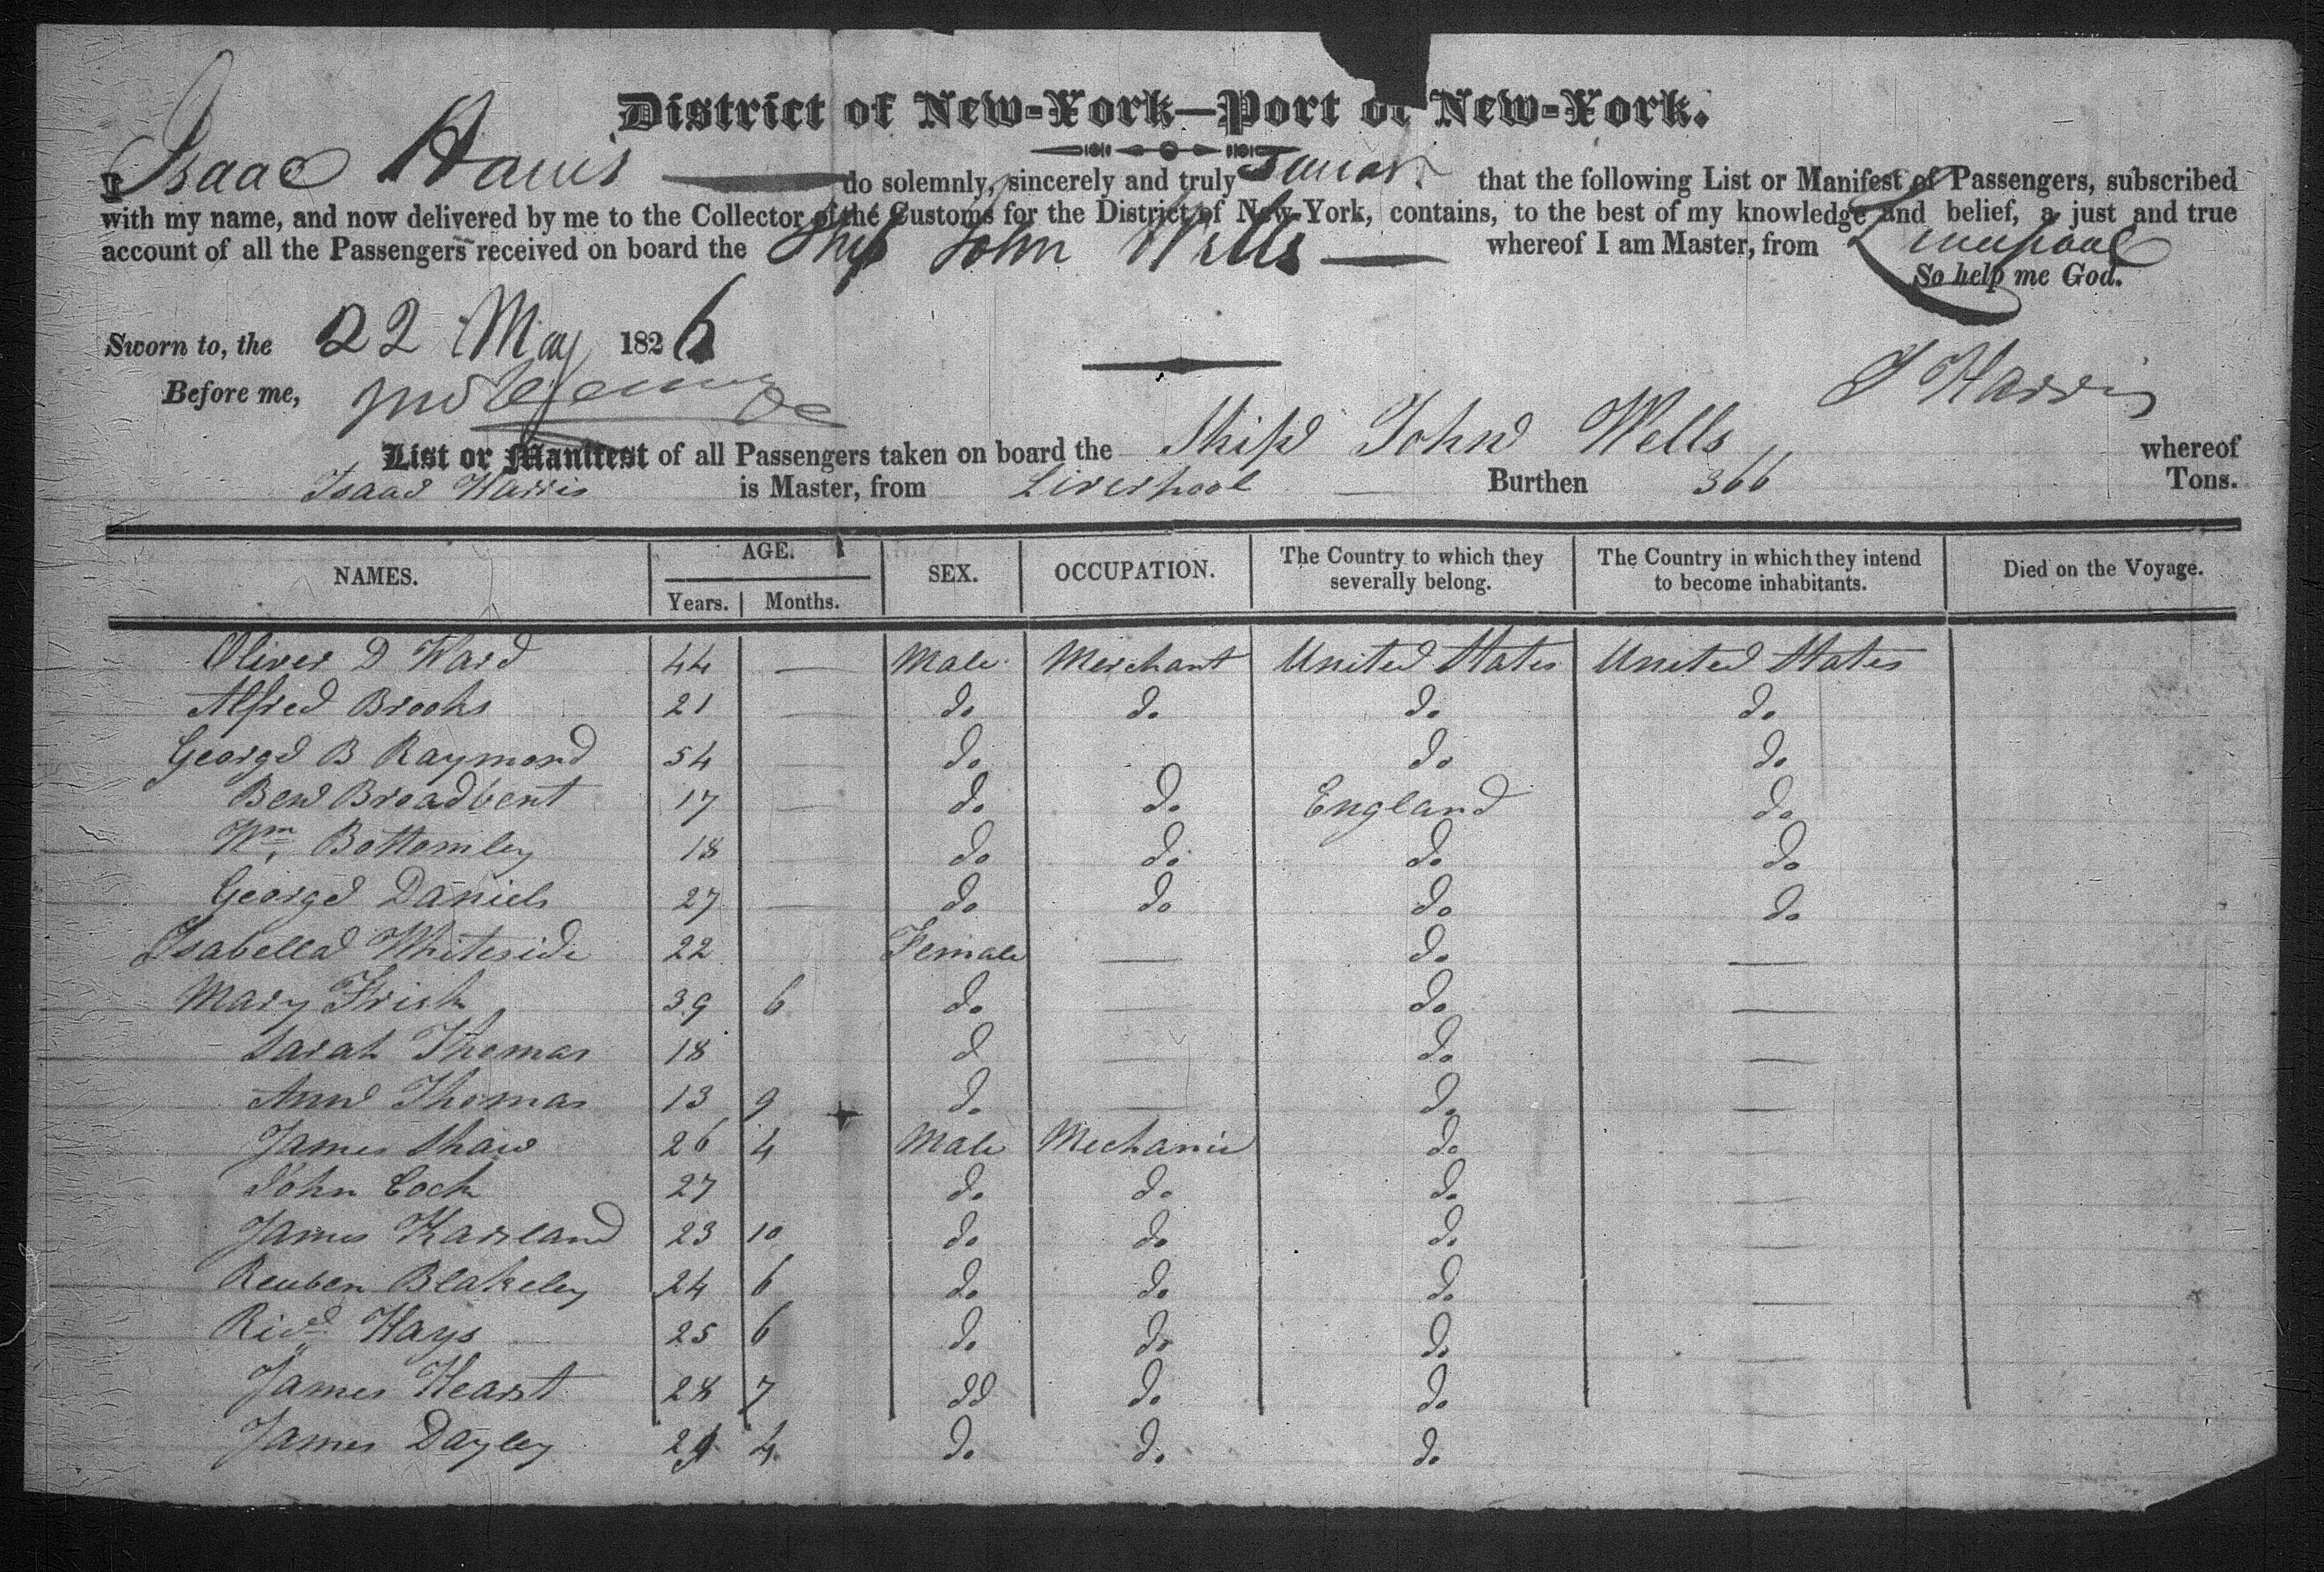 District of New-York—Port of New-York.
I Isaac Harris do solemnly, sincerely and truly swear that the following List or Manifest of Passengers, subscribed
with my name, and now delivered by me to the Collector of the Customs for the District of New York, contains, to the best of my knowledge and belief, a just and true
account of all the Passengers received on board the Ship John Wells whereof I am Master, from Liverpool
So help me God.
Sworn to, the 22 May 1826
Before me,
I Harris
List or Manifest of all Passengers taken on board the Ship John Wells whereof
Isaac Harris is Master, from Liverpool Burthen 366 Tons.
NAMES. AGE. Years. Months. SEX. OCCUPATION. The Country to which they severally belong. The Country in which they intend to become inhabitants. Died on the Voyage.
Oliver D Ward 44 — Male Merchant United States United States
Alfred Brooks 21 — do do do do
George B Raymond 54 — do do do
Ben Broadbent 17 — do do England do
Wm. Bottomley 18 — do do do do
George Daniels 27 — do do do do
Isabella Whiteside 22 Female — do —
Mary Frish 39 6 do — do —
Sarah Thomas 18 d — do —
Ann Thomas 13 9 do — do —
James Shaw 26 4 Male Mechanic do —
John Cock 27 do do do —
James Harsland 23 10 do do do —
Reuben Blakeley 24 6 do do do —
Ricd Hays 25 6 do do do —
James Hearst 28 7 dd do do —
James Dayley 29 4 do do do —